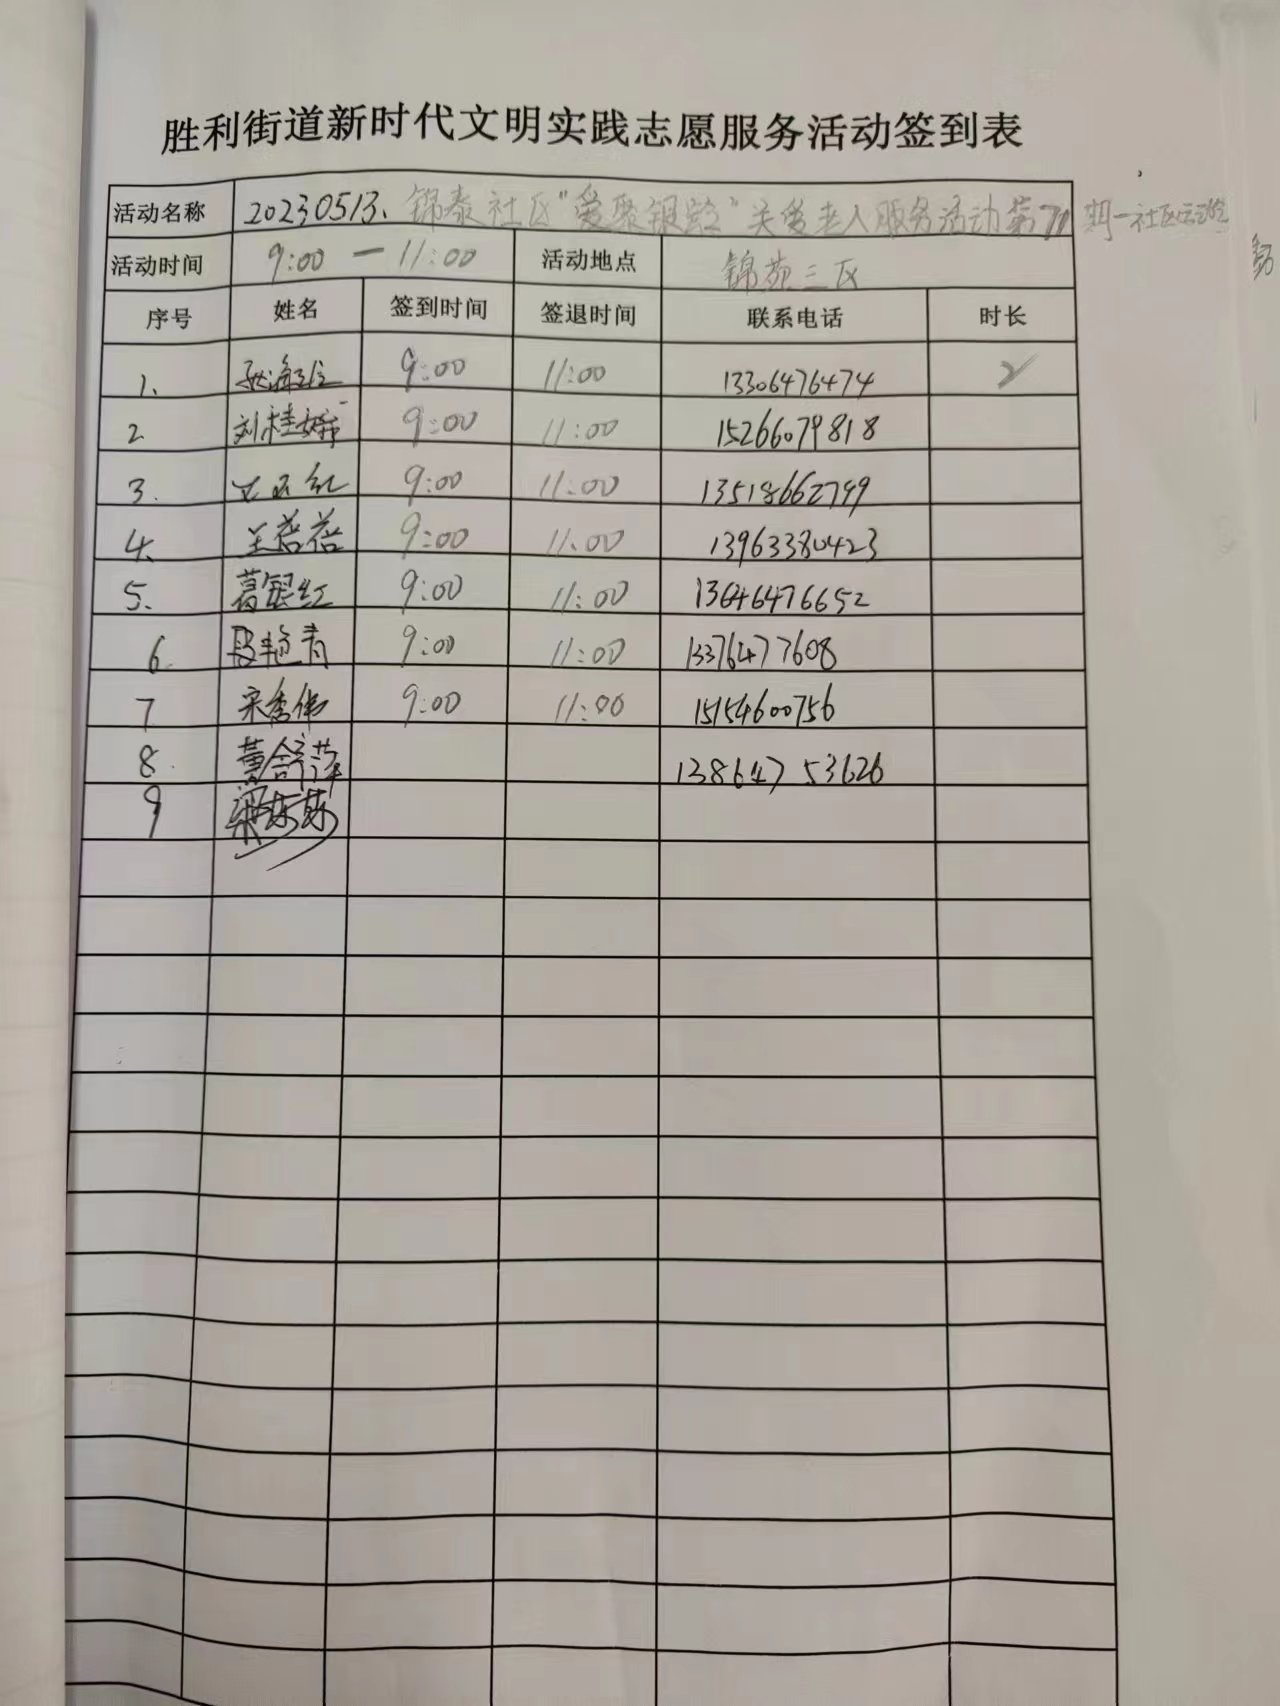 胜利街道新时代文明实践志愿服务活动签到表
活动名称 20230513、锦泰社区"爱聚银龄"关爱老人服务活动第71期一社区运动会
活动时间 9:00 — 11:00 活动地点 锦苑三区
序号 姓名 签到时间 签退时间 联系电话 时长
1、 9:00 11:00 13306476474 2
2 刘桂娥 9:00 11:00 15266079818
3. 9:00 11:00 13518662799
4、 王蓓蓓 9:00 11:00 13963380423
5、 葛银红 9:00 11:00 13646476652
6 段艳青 9:00 11:00 13376477608
7 宋秀伟 9:00 11:00 15154600756
8. 13864753626
9